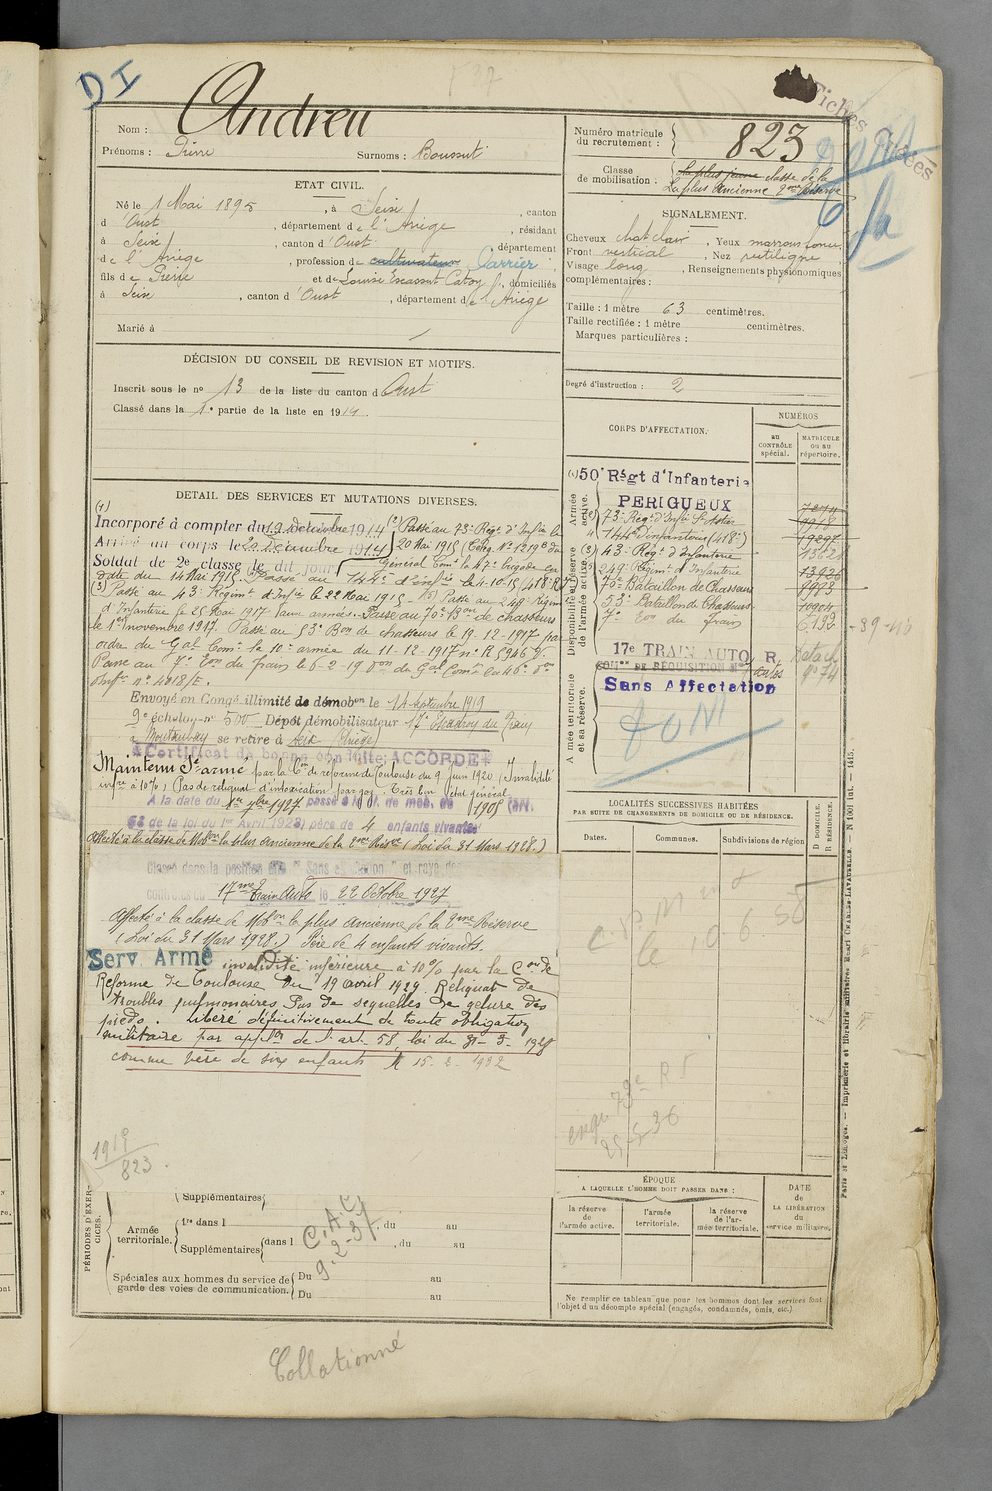 DI
Andreu
Nom :
Prénoms : Pierre
Surnoms : Boussut
ETAT CIVIL.
Né le 1 Mai 1895, à Seix, canton
d'Oust, département de l'Ariège, résidant
à Seix, canton d'Oust, département
de l'Ariège, profession de cultivateur Carrier
fils de Pierre et de Louise Escassut Catoy, domiciliés
à Seix, canton d'Oust, département de l'Ariège
Marié à
DÉCISION DU CONSEIL DE REVISION ET MOTIFS.
Inscrit sous le nº 13 de la liste du canton d'Oust
Classé dans la 1re partie de la liste en 1914.
DETAIL DES SERVICES ET MUTATIONS DIVERSES.
(1)
Incorporé à compter du 19 décembre 1914 (2) Passé au 73e Régt d'Infie le
Arrivé au corps le 22 Décembre 1914 20 Mai 1915 (Télég. Nº 1219 du
Soldat de 2e classe le dit jour Général Comt la 47e brigade en
date du 14 Mai 1915. Passé au 144e d'infie le 4-10-15 (418e R)
(3) Passé au 43e Régiment d'Infie le 22 Mai 1915 (5) Passé au 249e Régim
d'Infanterie le 25 Mai 1917 Passé au 70e Bon de chasseurs
le 1er novembre 1917. Passé au 53e Bon de chasseurs le 19-12-1917 par
ordre du Gal Comt la 10e armée du 11-12-1917 nº R 5946
Passé au 7e Eon du train le 6-2-19 don du Gal Comt la 46e don
Inftie nº 4818/E.
Envoyé en Congé illimité de démobon le 14 septembre 1919
9e échelon nº 500 Dépôt démobilisateur 17e Escadron du Train
à Montauban se retire à Seix (Ariège)
Certificat de bonne conduite; ACCORDE
Maintenu St armé par la Con de réforme de Toulouse du 9 juin 1920 (Invalidité
infre à 10%) Pas de reliquat d'intoxication par gaz. Très bon état général
A la date du 1er 7bre 1927 passé à la cl. de mob. de 1905 (art.
58 de la loi du 1er Avril 1923) père de 4 enfants vivants
Affecté à la classe de Mobon la plus ancienne de la 2me Résve (Loi du 31 Mars 1928.)
Classé dans la position dite "Sans affectation" et rayé des
contrôles du 17me Train Auto le 22 Octobre 1927
Affecté à la classe de Mobon la plus ancienne de la 2ème Réserve
(Loi du 31 Mars 1928.) Père de 4 enfants vivants.
Serv. Armé invalidité inférieure à 10% par la Con de
Réforme de Toulouse du 19 avril 1929. Reliquat de
troubles pulmonaires Pas de séquelles de gelure des
pieds. Libéré définitivement de toute obligation
militaire par applon de l'art. 58 loi du 31-3-1928
comme père de six enfants 15. 2. 1932
1919
823
PÉRIODES D'EXERCICES.
Supplémentaires
Armée territoriale.
1re dans l , du au
Supplémentaires dans l , du au
C.A.C.
9-2-37
Spéciales aux hommes du service de garde des voies de communication.
Du au
Du au
Collationné
Numéro matricule du recrutement : 823
Classe de mobilisation : La plus jeune classe de la
La plus Ancienne 2me Réserve
Fiches Fixées
SIGNALEMENT.
Cheveux chat clair, Yeux marrons foncé,
Front vertical, Nez rectiligne
Visage long, Renseignements physionomiques
complémentaires :
Taille : 1 mètre 63 centimètres.
Taille rectifiée : 1 mètre centimètres.
Marques particulières :
Degré d'instruction : 2
CORPS D'AFFECTATION.
NUMÉROS
au CONTRÔLE spécial.
MATRICULE ou au répertoire.
Armée active.
Disponibilité et réserve de l'armée active.
Armée territoriale et sa réserve.
(1) 50e Régt d'Infanterie
PERIGUEUX
(2) 73e Régt d'Infie St Astier
4 144e d'infanterie (418e)
(3) 43e Régt d'Infanterie
(5) 249e Régiment d'Infanterie
70e Bataillon de Chasseurs
53e Bataillon de Chasseurs
7e Eon du Train
17e TRAIN AUTO R.
Sans Affectation
LOCALITÉS SUCCESSIVES HABITÉES
PAR SUITE DE CHANGEMENTS DE DOMICILE OU DE RÉSIDENCE.
Dates.
Communes.
Subdivisions de région
D DOMICILE.
R RÉSIDENCE.
le 10-6-38
25-5-36
ÉPOQUE
A LAQUELLE L'HOMME DOIT PASSER DANS :
la réserve de l'armée active.
l'armée territoriale.
la réserve de l'armée territoriale.
DATE de LA LIBÉRATION du service militaire.
Ne remplir ce tableau que pour les hommes dont les services font
l'objet d'un décompte spécial (engagés, condamnés, omis, etc.)
Paris et Limoges. — Imprimerie et librairie militaires Henri CHARLES-LAVAUZELLE.